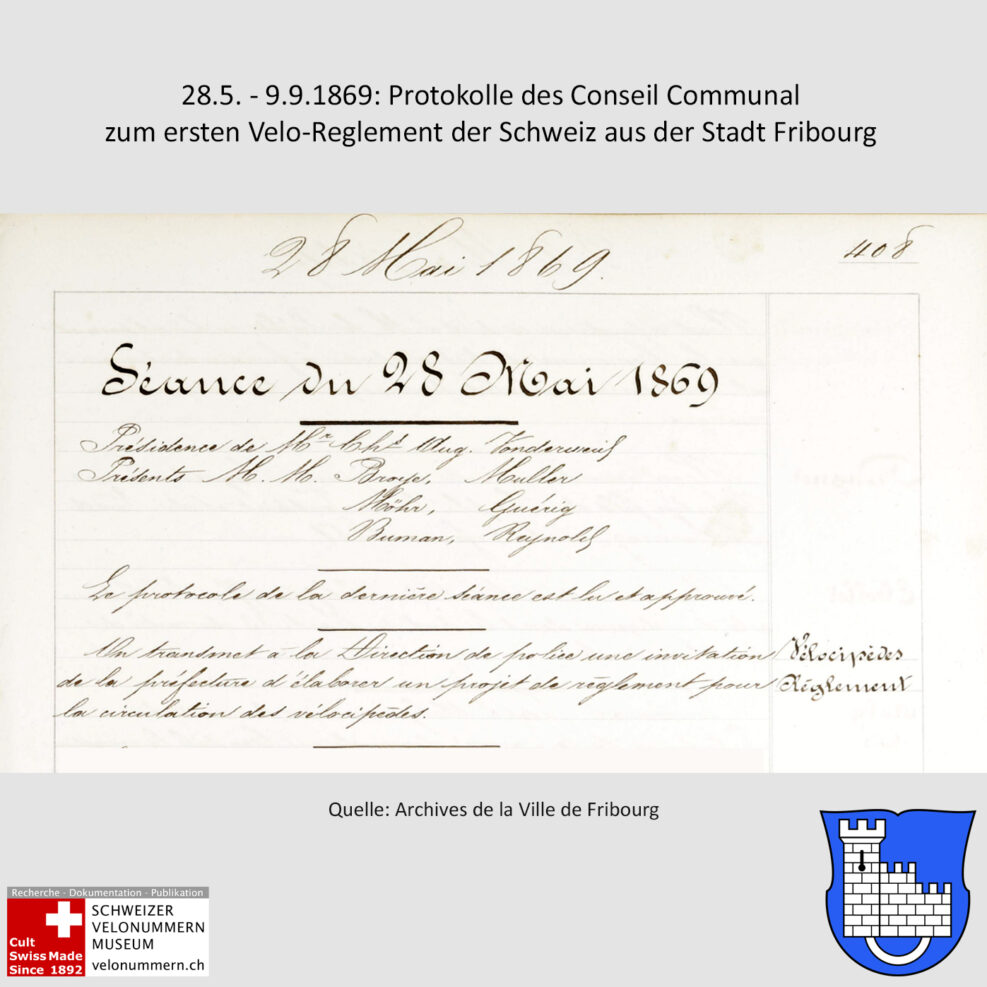 28.5. - 9.9.1869: Protokolle des Conseil Communal
zum ersten Velo-Reglement der Schweiz aus der Stadt Fribourg
28 Mai 1869.
408
Séance du 28 Mai 1869
Présidence de Mr Chs Aug. Vonderweid
Présents M. M. Broye, Muller
Möhr, Guérig
Buman, Reynold
Le protocole de la dernière séance est lu et approuvé.
On transmet à la Direction de police une invitation
de la préfecture d'élaborer un projet de règlement pour
la circulation des vélocipèdes.
Vélocipèdes
Règlement
Quelle: Archives de la Ville de Fribourg
Recherche - Dokumentation - Publikation
Cult
Swiss Made
Since 1892
SCHWEIZER
VELONUMMERN
MUSEUM
velonummern.ch